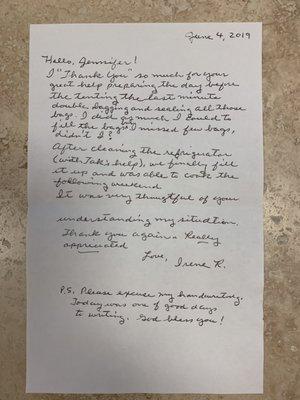 June 4, 2019
Hello, Jennifer!
I "Thank You" so much for your
great help preparing the day before
the tenting the last minute
double bagging and sealing all those
bags. I did as much I could to
fill the bags but I missed few bags,
didn't I?
After cleaning the refrigerator
(with Tak's help), we finally fill
it up and was able to cook the
following weekend.
It was very thoughtful of your
understanding my situation.
Thank you again - Really
appreciated
Love,
Irene R.
P.S. Please excuse my handwriting.
Today was one of good days
to writing. God bless you!